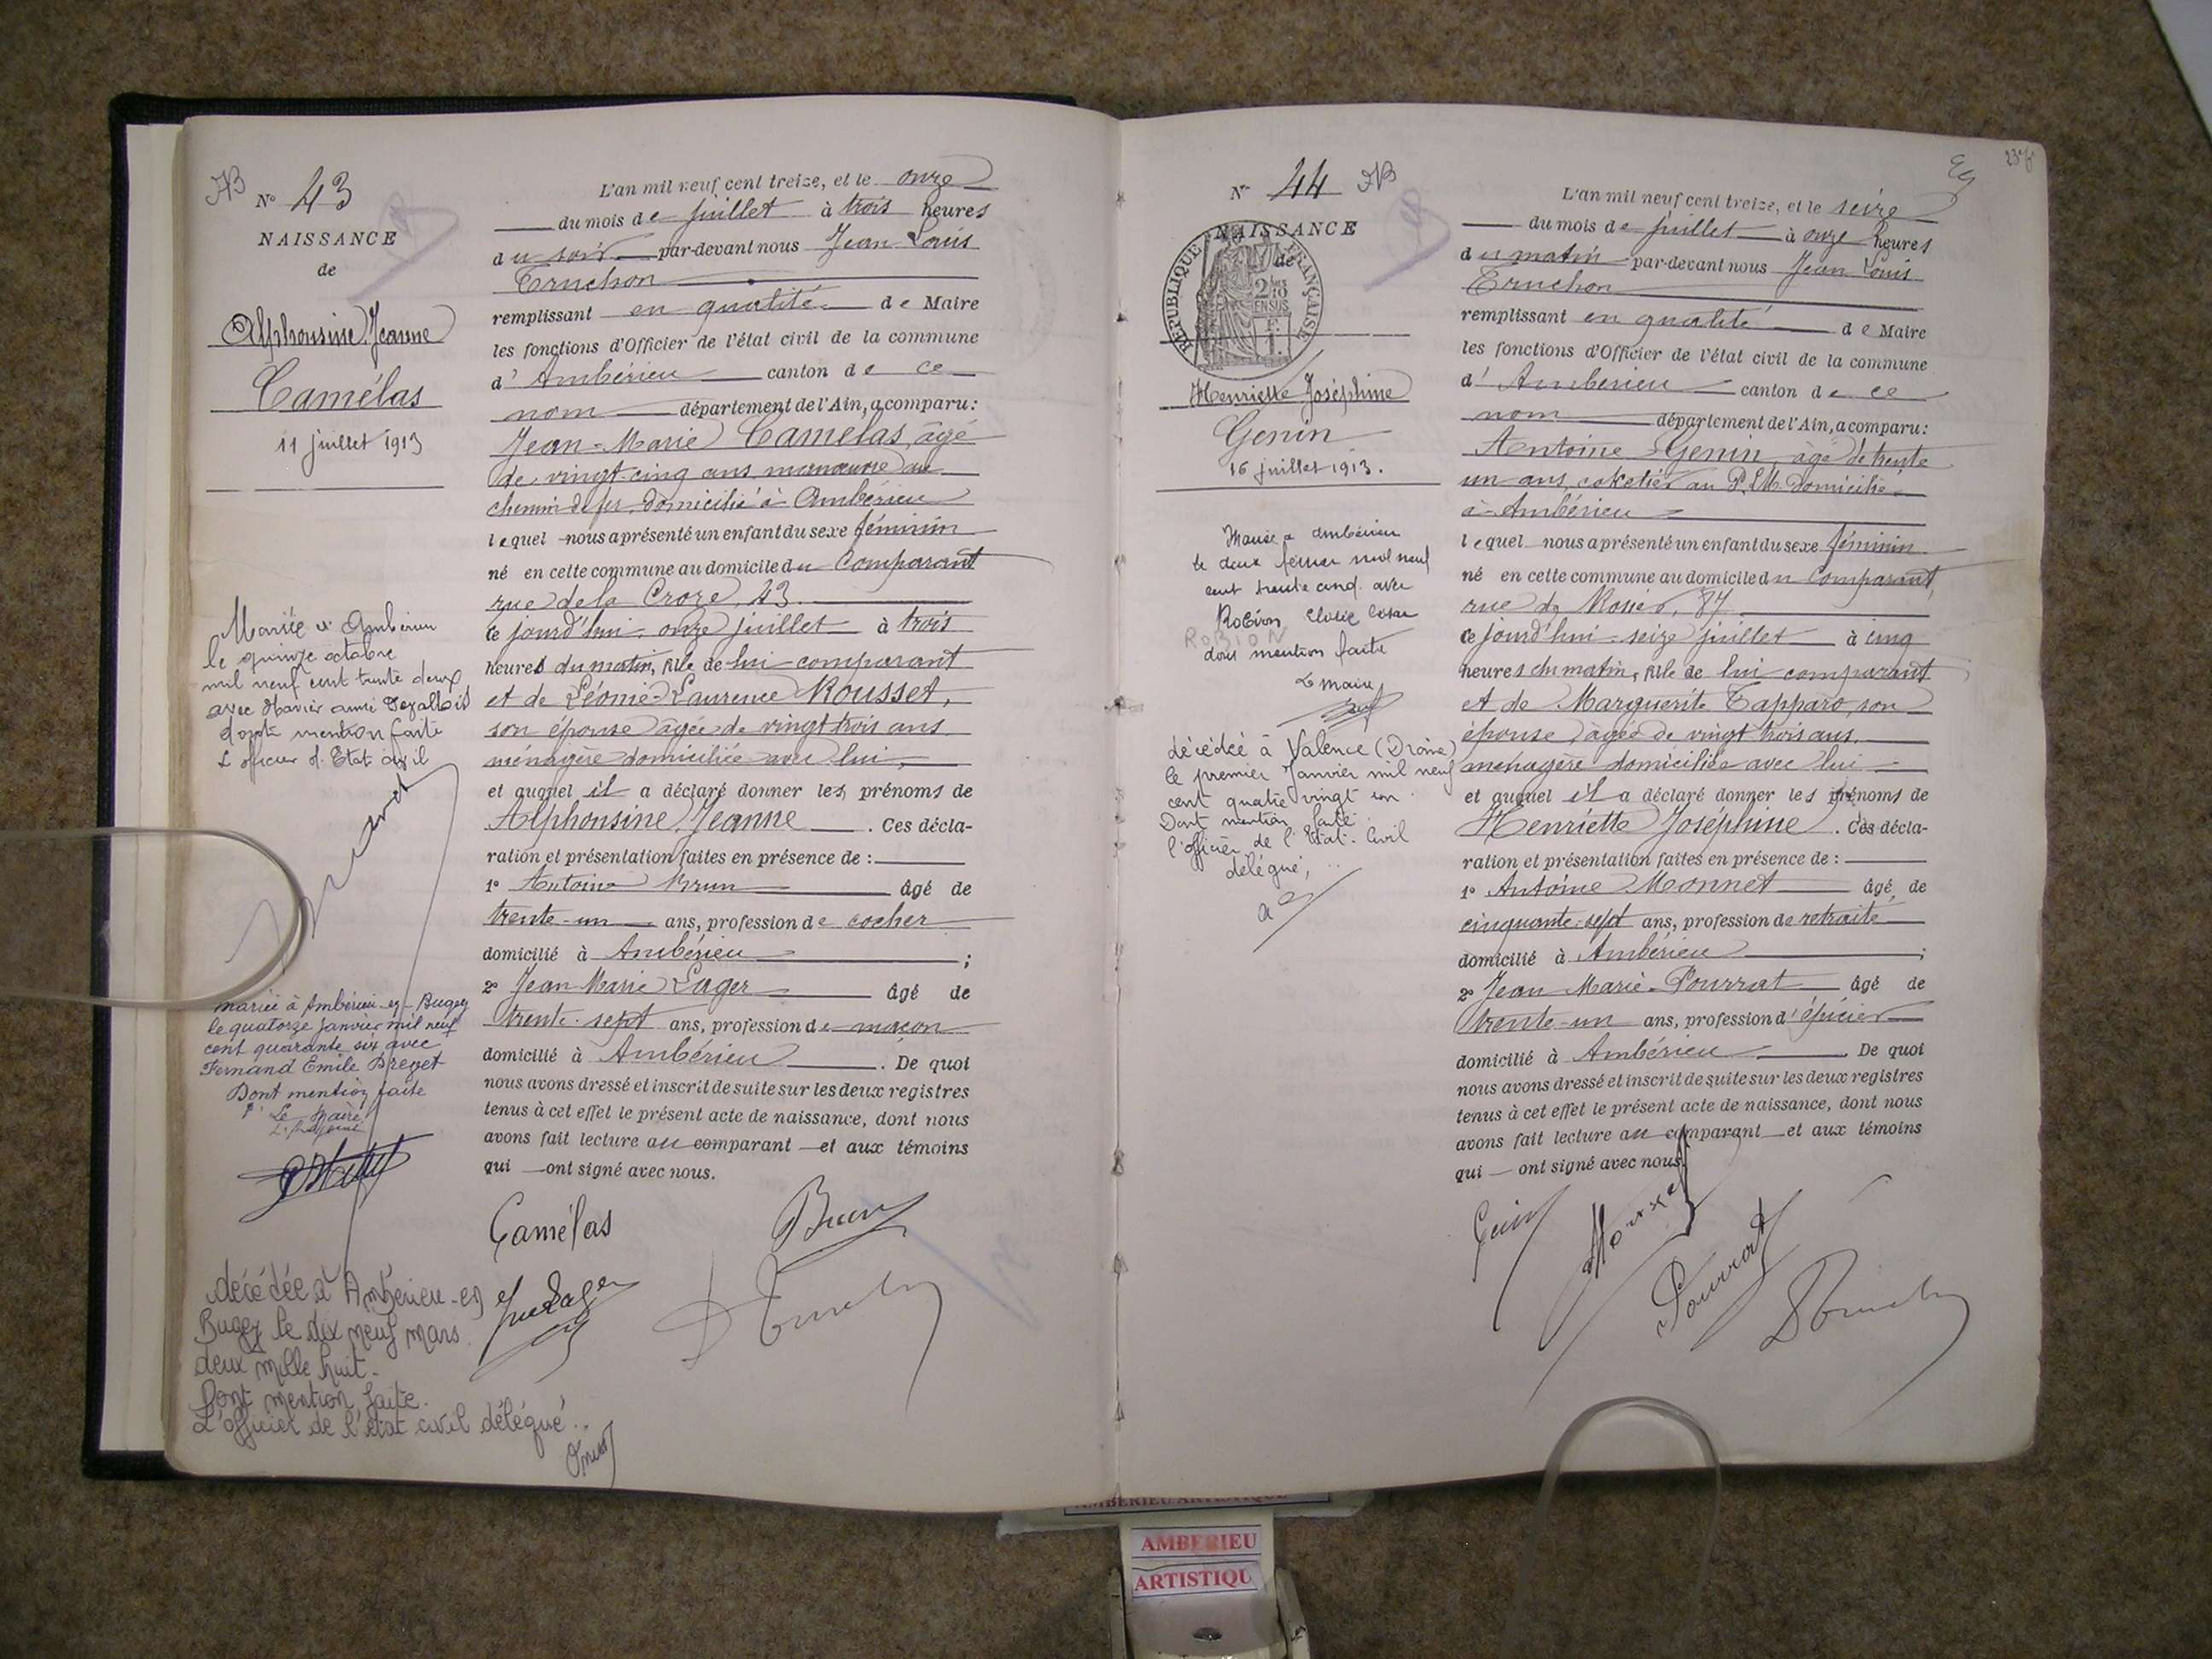 N° 43
NAISSANCE
de
Alphonsine Jeanne
Camélas
11 juillet 1913
Mariée à Ambérieu
le quinze octobre
mil neuf cent trente deux
avec
dont mention faite
L'officier d'Etat civil
mariée à Ambérieu-en-Bugey
le quatorze janvier mil neuf
cent quarante six avec
Fernand Emile
Dont mention faite
Le Maire
décédée à Ambérieu-en
Bugey le dix neuf mars
deux mille huit.
Dont mention faite.
L'officier de l'état civil délégué.
L'an mil neuf cent treize, et le onze
du mois de juillet à trois heures
du soir par-devant nous Jean Louis
Truchon
remplissant en qualité de Maire
les fonctions d'Officier de l'état civil de la commune
d' Ambérieu canton de ce
nom département de l'Ain, a comparu :
Jean-Marie Camélas, âgé
de vingt-cinq ans, manœuvre au
chemin de fer, domicilié à Ambérieu
lequel nous a présenté un enfant du sexe féminin
né en cette commune au domicile du comparant
rue de la Croze, 43
ce jourd'hui onze juillet à trois
heures du matin, fille de lui comparant
et de Léonie-Laurence Rousset,
son épouse âgée de vingt trois ans
ménagère domiciliée avec lui,
et auquel il a déclaré donner les prénoms de
Alphonsine Jeanne. Ces décla-
ration et présentation faites en présence de :
1° Antoine Brun âgé de
trente-un ans, profession de cocher
domicilié à Ambérieu ;
2° Jean Marie Lager âgé de
trente-sept ans, profession de maçon
domicilié à Ambérieu. De quoi
nous avons dressé et inscrit de suite sur les deux registres
tenus à cet effet le présent acte de naissance, dont nous
avons fait lecture au comparant et aux témoins
qui ont signé avec nous.
Camélas
Brun
N° 44
NAISSANCE
de
RÉPUBLIQUE FRANÇAISE
Henriette Joséphine
Genin
16 juillet 1913.
Mariée à Ambérieu
le deux février mil neuf
cent trente cinq avec
ROBION
dont mention faite
Le maire
décédée à Valence (Drôme)
le premier Janvier mil neuf
cent quatre vingt un
Dont mention faite.
l'officier de l'Etat-Civil
délégué,
L'an mil neuf cent treize, et le seize
du mois de juillet à onze heures
du matin par-devant nous Jean Louis
Truchon
remplissant en qualité de Maire
les fonctions d'Officier de l'état civil de la commune
d' Ambérieu canton de ce
nom département de l'Ain, a comparu :
Antoine Genin, âgé de trente
un ans, coketier au P.L.M. domicilié
à Ambérieu
lequel nous a présenté un enfant du sexe féminin
né en cette commune au domicile du comparant,
rue 87
ce jourd'hui seize juillet à cinq
heures du matin, fille de lui comparant
et de Marguerite Tapparo, son
épouse, âgée de vingt trois ans,
ménagère domiciliée avec lui
et auquel il a déclaré donner les prénoms de
Henriette Joséphine. Ces décla-
ration et présentation faites en présence de :
1° Antoine Monnet âgé de
cinquante-sept ans, profession de retraité
domicilié à Ambérieu ;
2° Jean Marie Pourrat âgé de
trente-un ans, profession d'épicier
domicilié à Ambérieu. De quoi
nous avons dressé et inscrit de suite sur les deux registres
tenus à cet effet le présent acte de naissance, dont nous
avons fait lecture au comparant et aux témoins
qui ont signé avec nous.
Pourrat
AMBERIEU
ARTISTIQU